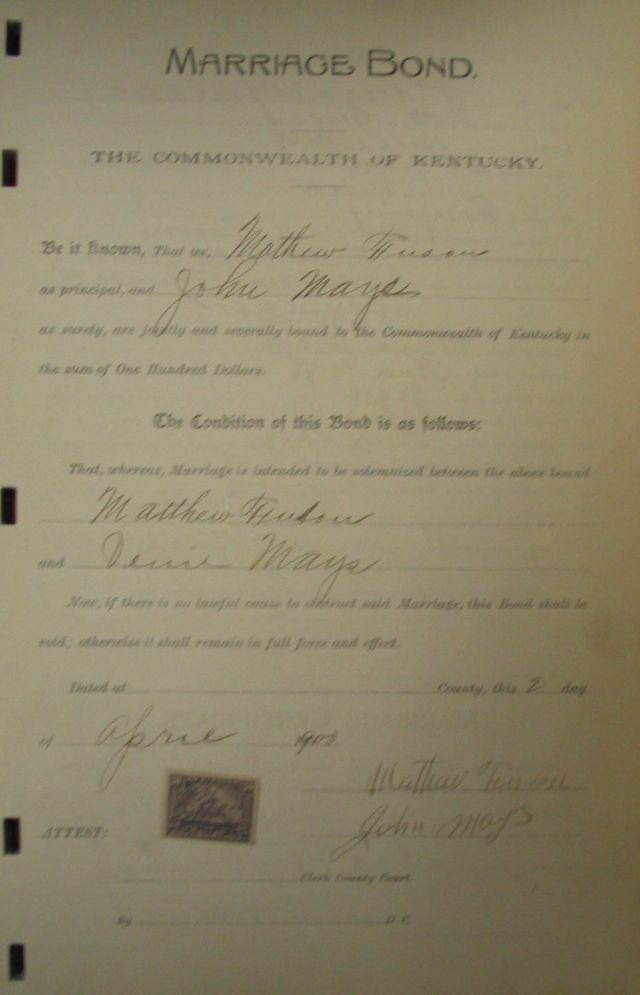 MARRIAGE BOND.
THE COMMONWEALTH OF KENTUCKY.
Be it Known, That we, Mathew Fuson
as principal, and John Mays
as surety, are jointly and severally bound to the Commonwealth of Kentucky in
the sum of One Hundred Dollars.
The Condition of this Bond is as follows:
That, whereas, Marriage is intended to be solemnized between the above bound
Matthew Fuson
and Mays
Now, if there is no lawful cause to obstruct said Marriage, this Bond shall be
void; otherwise it shall remain in full force and effect.
Dated at County, this 2 day
of April 1900
Mathew Fuson
John Mays
ATTEST:
Clerk County Court.
By D. C.